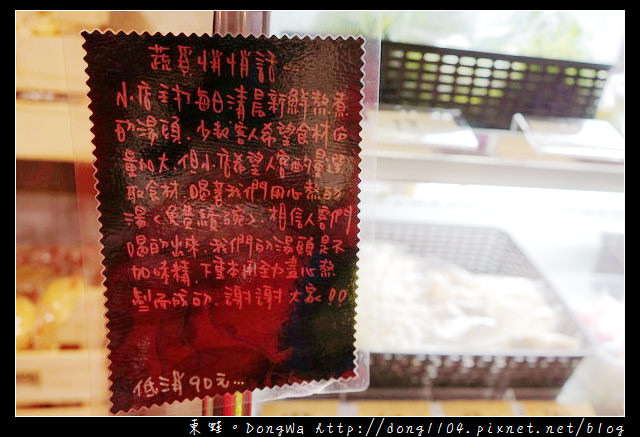 蔬果悄悄話
小店主打每日清晨新鮮熬煮
的湯頭.少數客人希望食材的
量加大.但小店希望人客酌量選
取食材.喝著我們用心熬的
湯<免費續碗>.相信人客們
喝的出來.我們的湯頭是不
加味精.下重本用全力盡心熬
製而成的.謝謝大家!!
低消90元...
東野。DongWa http://dong1104.pixnet.net/blog